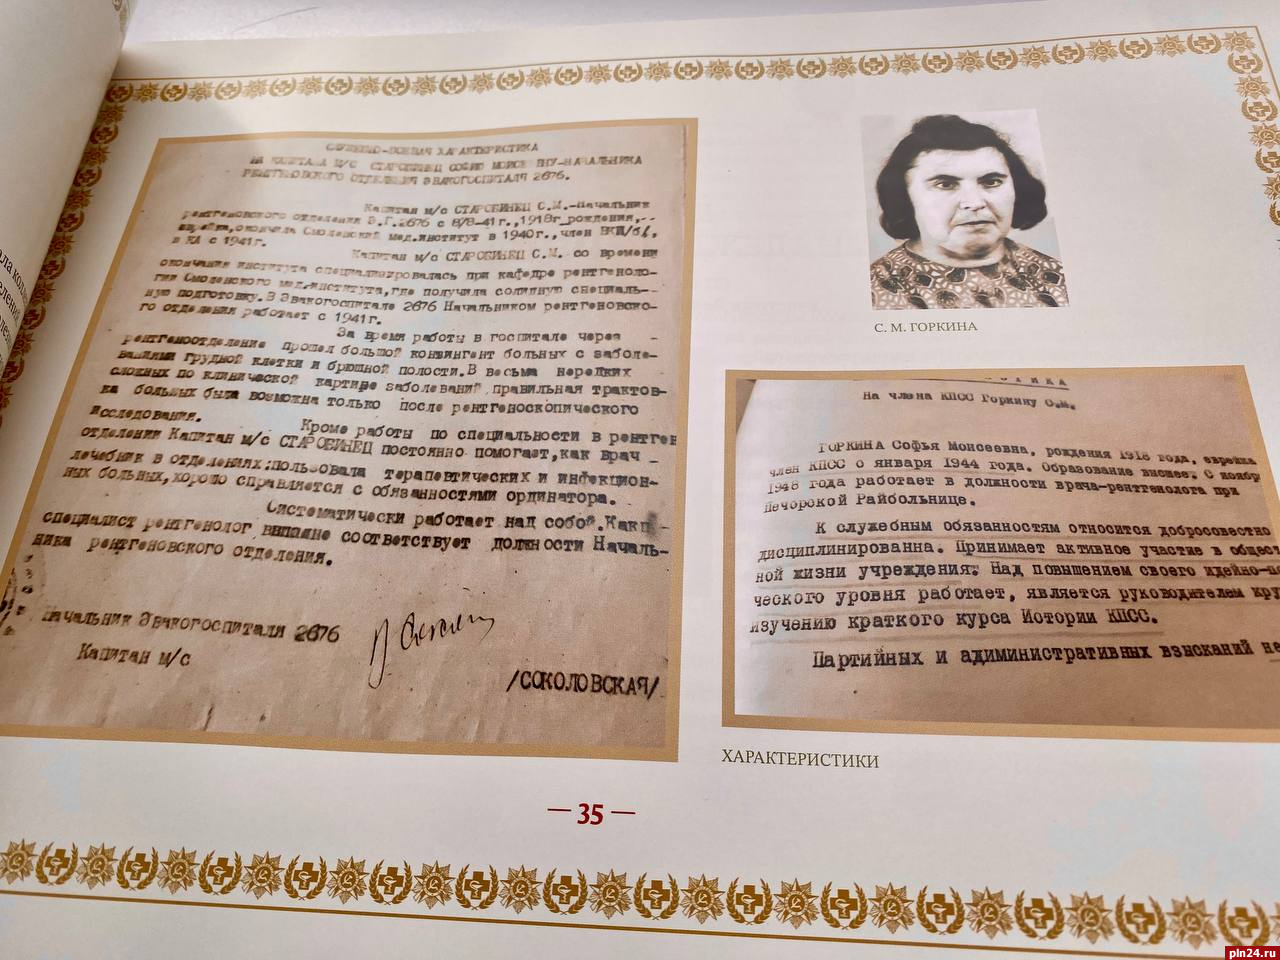 ала колле
елений
СЛУЖЕБНО-БОЕВАЯ ХАРАКТЕРИСТИКА
НА КАПИТАНА М/С СТАРОБИНЕЦ СОФИЮ МОИСЕЕВНУ-НАЧАЛЬНИКА
РЕНТГЕНОВСКОГО ОТДЕЛЕНИЯ ЭВАКОГОСПИТАЛЯ 2676.
Капитан м/с СТАРОБИНЕЦ С.М.-Начальник
рентгеновского отделения Э.Г.2676 с 8/8-41г.,1918г рождения,
еврейка,окончила Смоленский мед.институт в 1940г.,член ВКП/б/,
в КА с 1941г.
Капитан м/с СТАРОБИНЕЦ С.М. со времени
окончания института специализировалась при кафедре рентгеноло-
гии Смоленского мед.института,где получила солидную специаль-
ную подготовку.В Эвакогоспитале 2676 Начальником рентгеновско-
го отделения работает с 1941г.
За время работы в госпитале через
рентгеноотделение прошел большой контингент больных с заболе-
ваниями грудной клетки и брюшной полости.В весьма нередких
сложных по клинической картине заболеваний правильная трактов-
ка больных была возможна только после рентгеноскопического
исследования.
Кроме работы по специальности в рентген
отделении Капитан м/с СТАРОБИНЕЦ постоянно помогает,как врач
лечебник в отделениях:пользовала терапевтических и инфекцион-
ных больных,хорошо справляется с обязанностями ординатора.
Систематически работает над собой.Как
специалист рентгенолог вполне соответствует должности Началь-
ника рентгеновского отделения.
Начальник Эвакогоспиталя 2676
Капитан м/с
/СОКОЛОВСКАЯ/
С. М. ГОРКИНА
На члена КПСС Горкину С.М.
ГОРКИНА Софья Моисеевна, рождения 1918 года, еврейка
член КПСС с января 1944 года. Образование высшее. С ноябр
1948 года работает в должности врача-рентгенолога при
Печорской Райбольнице.
К служебным обязанностям относится добросовестно
дисциплинированна. Принимает активное участие в общест
ной жизни учреждения. Над повышением своего идейно-по
ческого уровня работает, является руководителем кру
изучению краткого курса Истории КПСС.
Партийных и адиминистративных взысканий не
ХАРАКТЕРИСТИКИ
— 35 —
pln24.ru